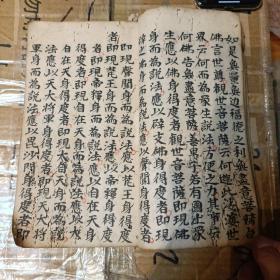 如是無量無邊福德之利無盡意菩薩白
佛言世尊觀世音菩薩云何遊此娑婆世
界云何而為眾生說法方便之力其事云
何佛告無盡意菩薩善男子若有國土眾
生應以佛身得度者觀世音菩薩即現佛
身而為說法應以辟支佛身得度者即現
辟支佛身而為說法應以聲聞身得度者
即現聲聞身而為說法應以梵王身得度
者即現梵王身而為說法應以帝釋身得度
者即現帝釋身而為說法應以自在天身
得度者即現自在天身而為說法應以大
自在天身得度者即現大自在天身而為說
法應以天大將軍身得度者即現天大將
軍身而為說法應以毗沙門身得度者即